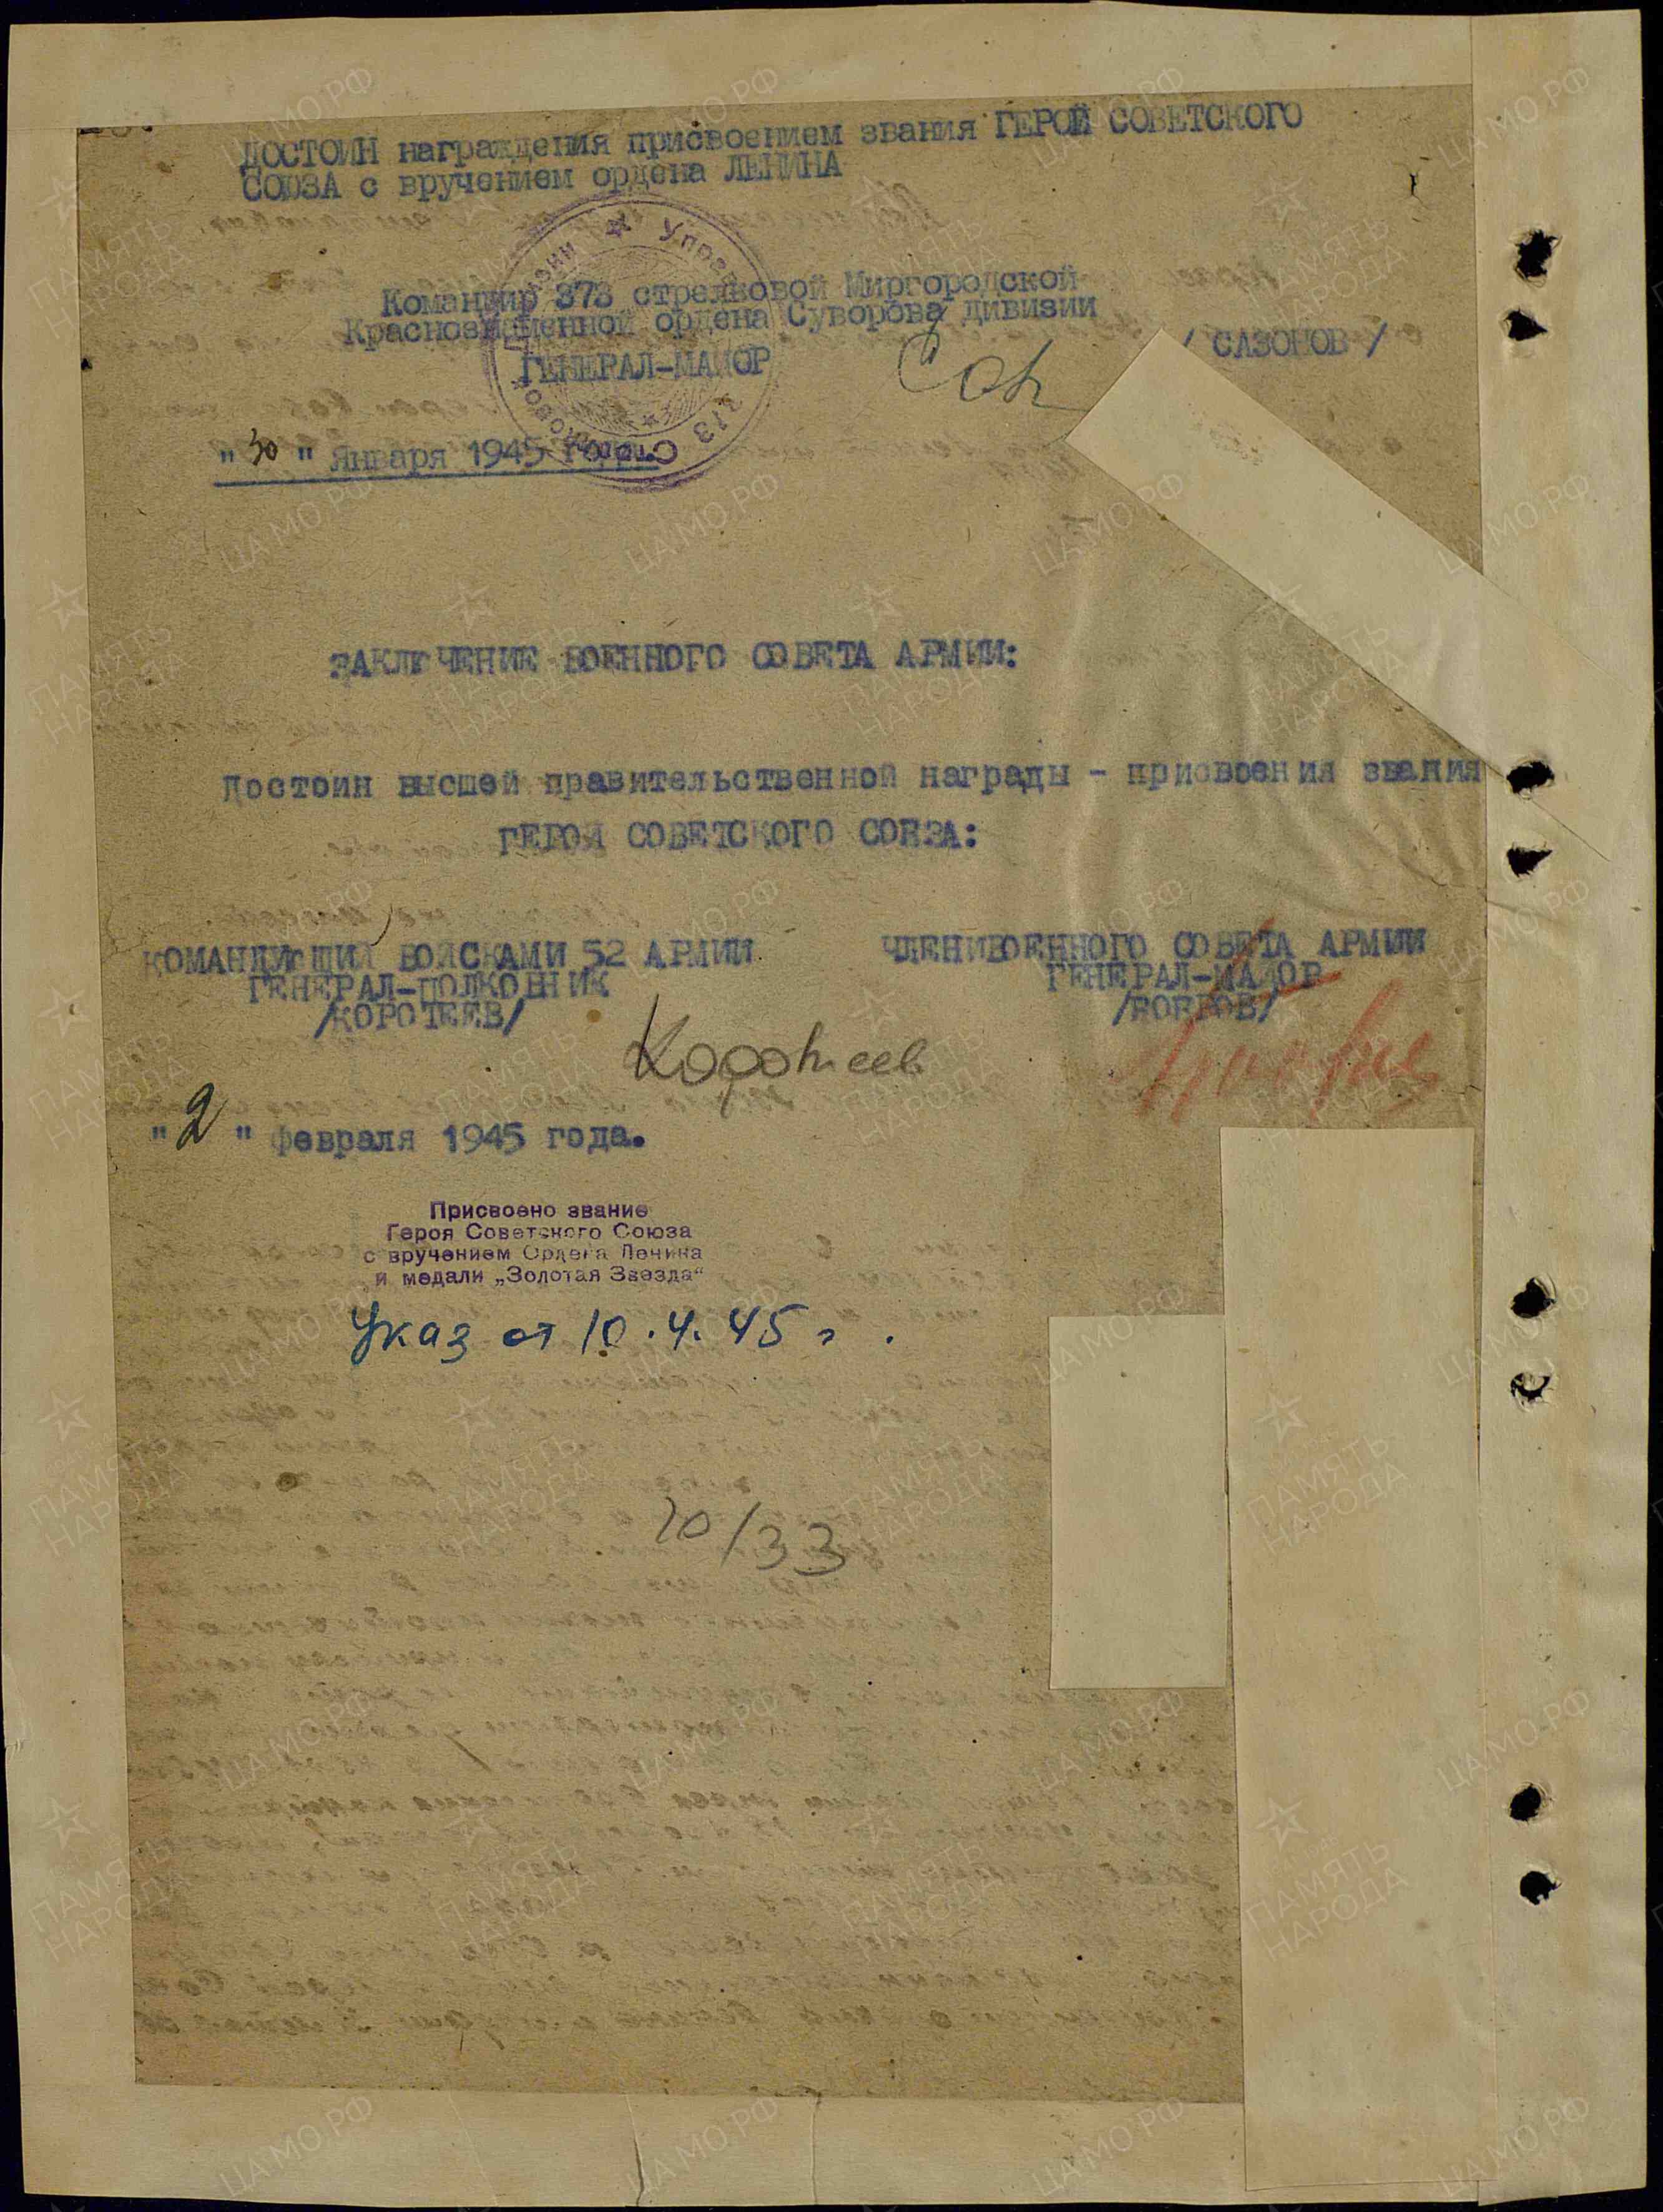 ДОСТОИН награждения присвоением звания ГЕРОЙ СОВЕТСКОГО
СОЮЗА с вручением ордена ЛЕНИНА
Командир 373 стрелковой Миргородской
Краснознаменной ордена Суворова дивизии
ГЕНЕРАЛ-МАЙОР
/ САЗОНОВ /
"30" Января 1945 года.
ЗАКЛЮЧЕНИЕ ВОЕННОГО СОВЕТА АРМИИ:
Достоин высшей правительственной награды - присвоения звания
ГЕРОЯ СОВЕТСКОГО СОЮЗА:
КОМАНДУЮЩИЙ ВОЙСКАМИ 52 АРМИИ
ГЕНЕРАЛ-ПОЛКОВНИК
/КОРОТЕЕВ/
Коротеев
ЧЛЕН ВОЕННОГО СОВЕТА АРМИИ
ГЕНЕРАЛ-МАЙОР
"2" февраля 1945 года.
Присвоено звание
Героя Советского Союза
с вручением Ордена Ленина
и медали „Золотая Звезда“
Указ от 10.4.45 г.
10/33
ПАМЯТЬ
НАРОДА
ЦАМО.РФ